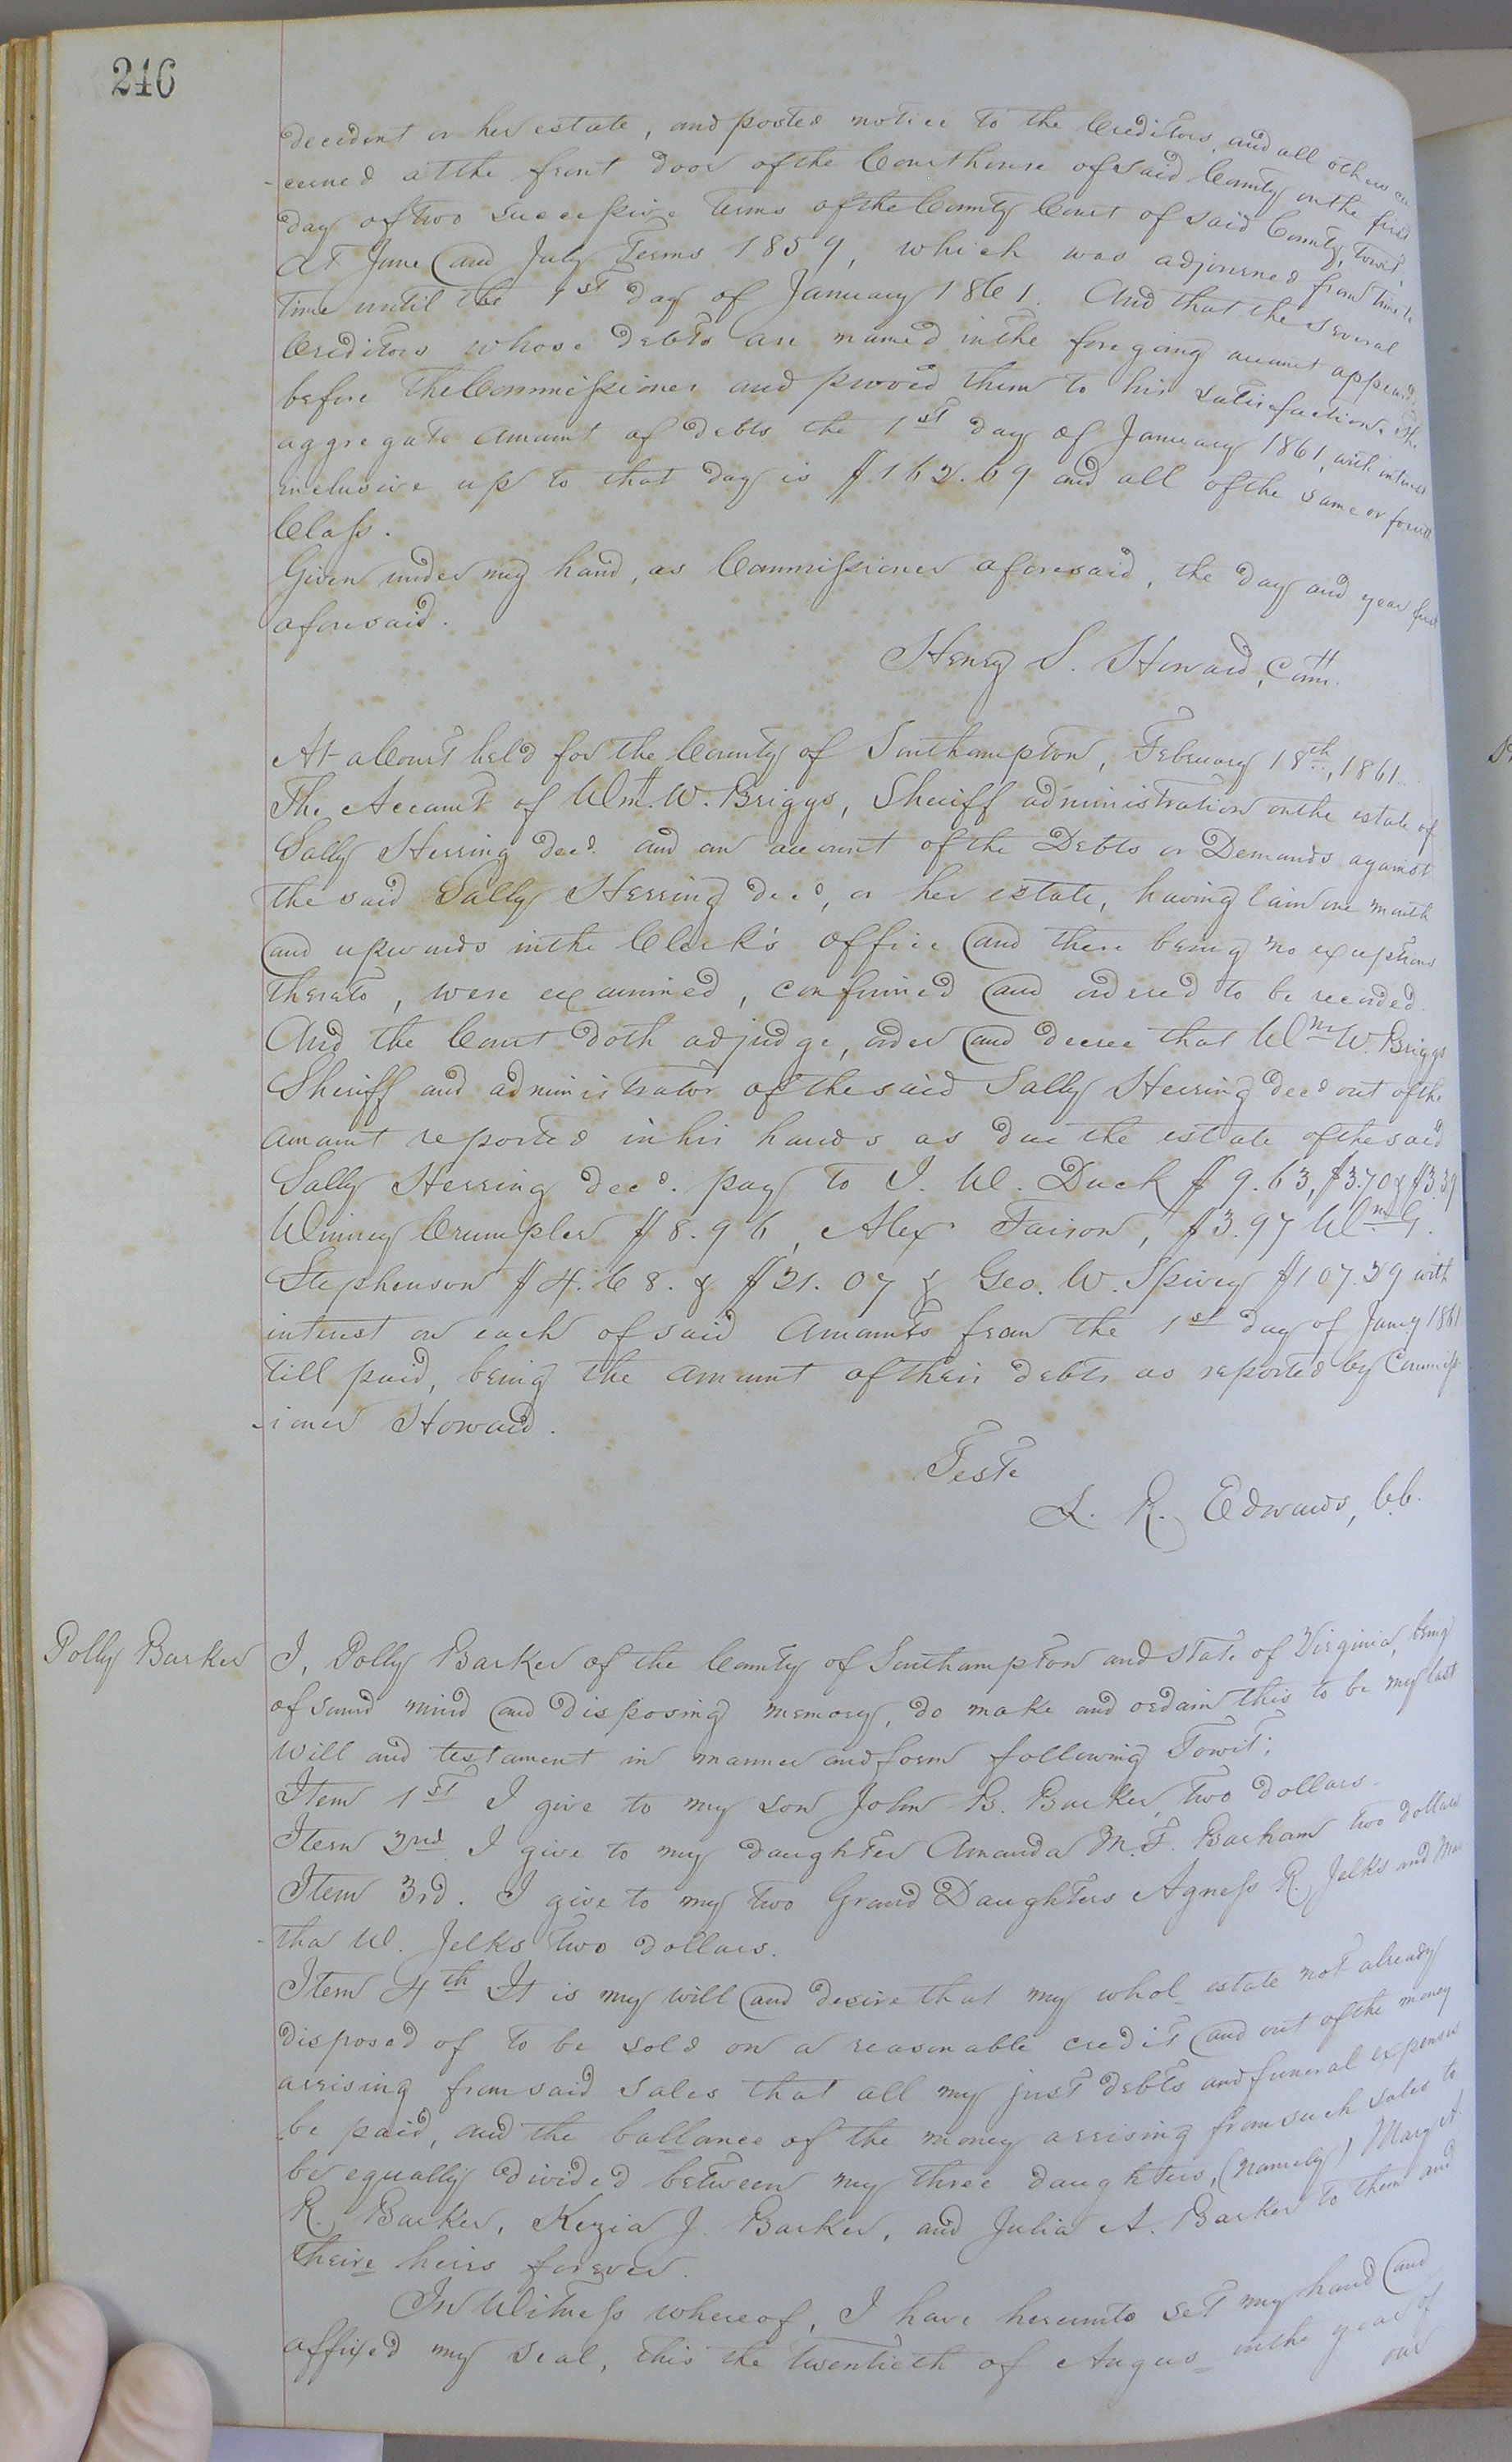 246
decedent or her estate, and posted notice to the Creditors, and all others con
-cerned at the front door of the Courthouse of said County on the first
day of two successive terms of the County Court of said County, towit,
at June and July Terms 1859, which was adjourned from time to
time until the 1st day of January 1861. And that the several
Creditors whose debts are named in the foregoing account appeared
before the Commissioner and proved them to his satisfaction. The
aggregate amount of debts the 1st day of January 1861, with interest
inclusive up to that day is $162.69 and all of the same or fourth
Class.
Given under my hand, as Commissioner aforesaid, the day and year first
aforesaid.
Henry S. Howard, Comr.
At a Court held for the County of Southampton, February 18th, 1861.
The Account of Wm. W. Briggs, Sheriff administration on the estate of
Sally Herring decd. and an account of the Debts or Demands against
the said Sally Herring decd, or her estate, having lain one month
and upwards in the Clerk's office and there being no exceptions
thereto, were examined, confirmed and ordered to be recorded.
And the Court doth adjudge, order and decree that Wm W. Briggs
Sheriff and administrator of the said Sally Herring decd out of the
amount reported in his hands as due the estate of the said
Sally Herring decd. pay to J. W. Duck $9.63, $3.70 & $3.39
Winney Crumpler $8.96, Alex. Faison, $3.97 Wm G.
Stephenson $4.68. & $21.07 & Geo. W. Spivey $107.29 with
interest on each of said amounts from the 1st day of Jany 1861
till paid, being the amount of their debts as reported by Commiss
-ioner Howard.
Teste
L. R. Edwards, C.C.
Polly Barker
I, Polly Barker of the County of Southampton and state of Virginia, being
of sound mind and disposing memory, do make and ordain this to be my last
will and testament in manner and form following Towit:
Item 1st I give to my son John B. Barker, two dollars.
Item 2nd. I give to my daughter Amanda M. F. Barham two dollars
Item 3rd. I give to my two Grand Daughters Agness R. Jelks and Mar
-tha W. Jelks two dollars.
Item 4th It is my will and desire that my whol_ estate not already
disposed of to be sold on a reasonable credit and out of the money
arrising from said sales that all my just debts and funeral expenses
be paid, and the ballance of the money arrising from such sales to
be equally divided between my three daughters, (namely) Mary A.
R. Barker, Kezia J. Barker, and Julia A. Barker to them and
theire heirs forever.
In Witness whereof, I have hereunto set my hand and
affixed my seal, this the twentieth of Augus_ in the year of
our